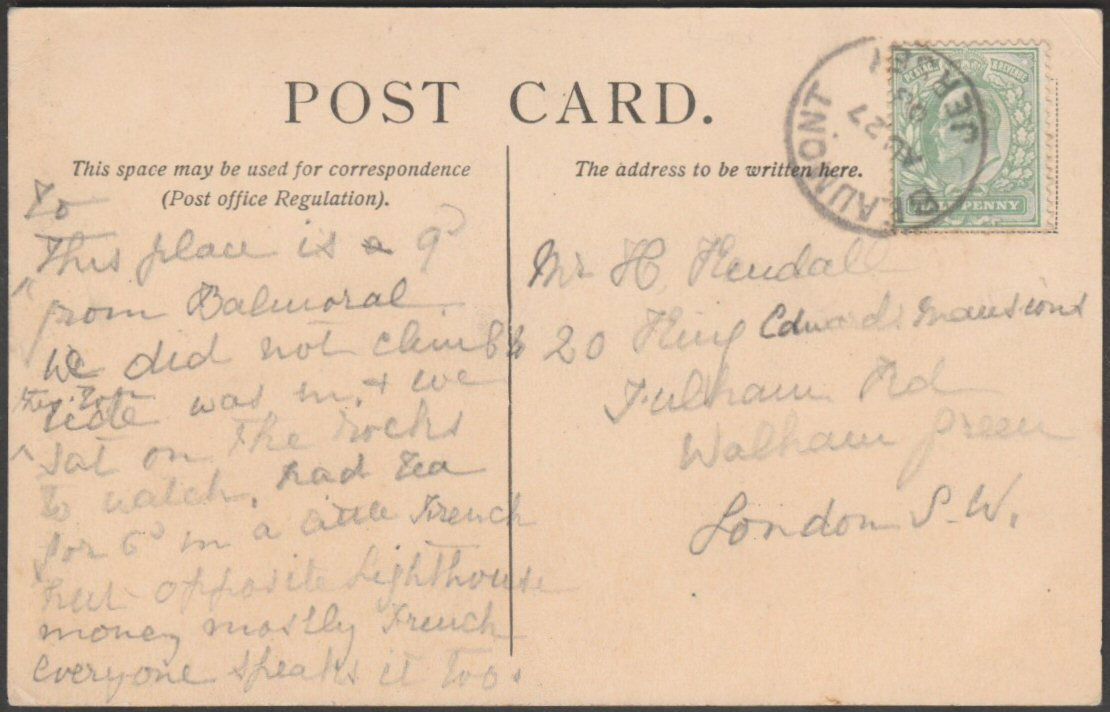 POST CARD.
This space may be used for correspondence
(Post office Regulation).
The address to be written here.
BEAUMONT
JERSEY
AU 27
POSTAGE & REVENUE
HALFPENNY
To
This place is a 9d
from Balmoral
We did not climb
tide was in, & we
sat on the rocks
to watch, had tea
for 6d in a little French
hut opposite Lighthouse
money mostly French
everyone speaks it too.
Mr H Kendall
20 King Edwards Mansions
Fulham Rd
Walham Green
London S.W.